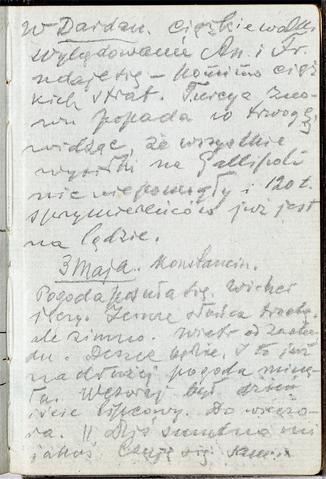 W Dardan. ciężkie walki
wylądowanie An. i Fr.
udaje się – pomimo cięż
kich strat. Turcya zno-
wu popada w trwogę,
widząc, że wszystkie
wysiłki na Gallipoli
nic nie pomogły i 120 t.
sprzymierzeńców już jest
na lądzie.
3 Maja. Konstancin.
Pogoda psuła się. Wicher
silny. Jeszcze słońca trochę,
ale zimno. Wiatr od zacho-
du. Deszcz będzie. I to już
na dłużej pogoda minę-
ła. Wczoraj był dzień
iście lipcowy. Do wieczo-
ra. || Dziś smutno mi
jakoś. Czuję się sam